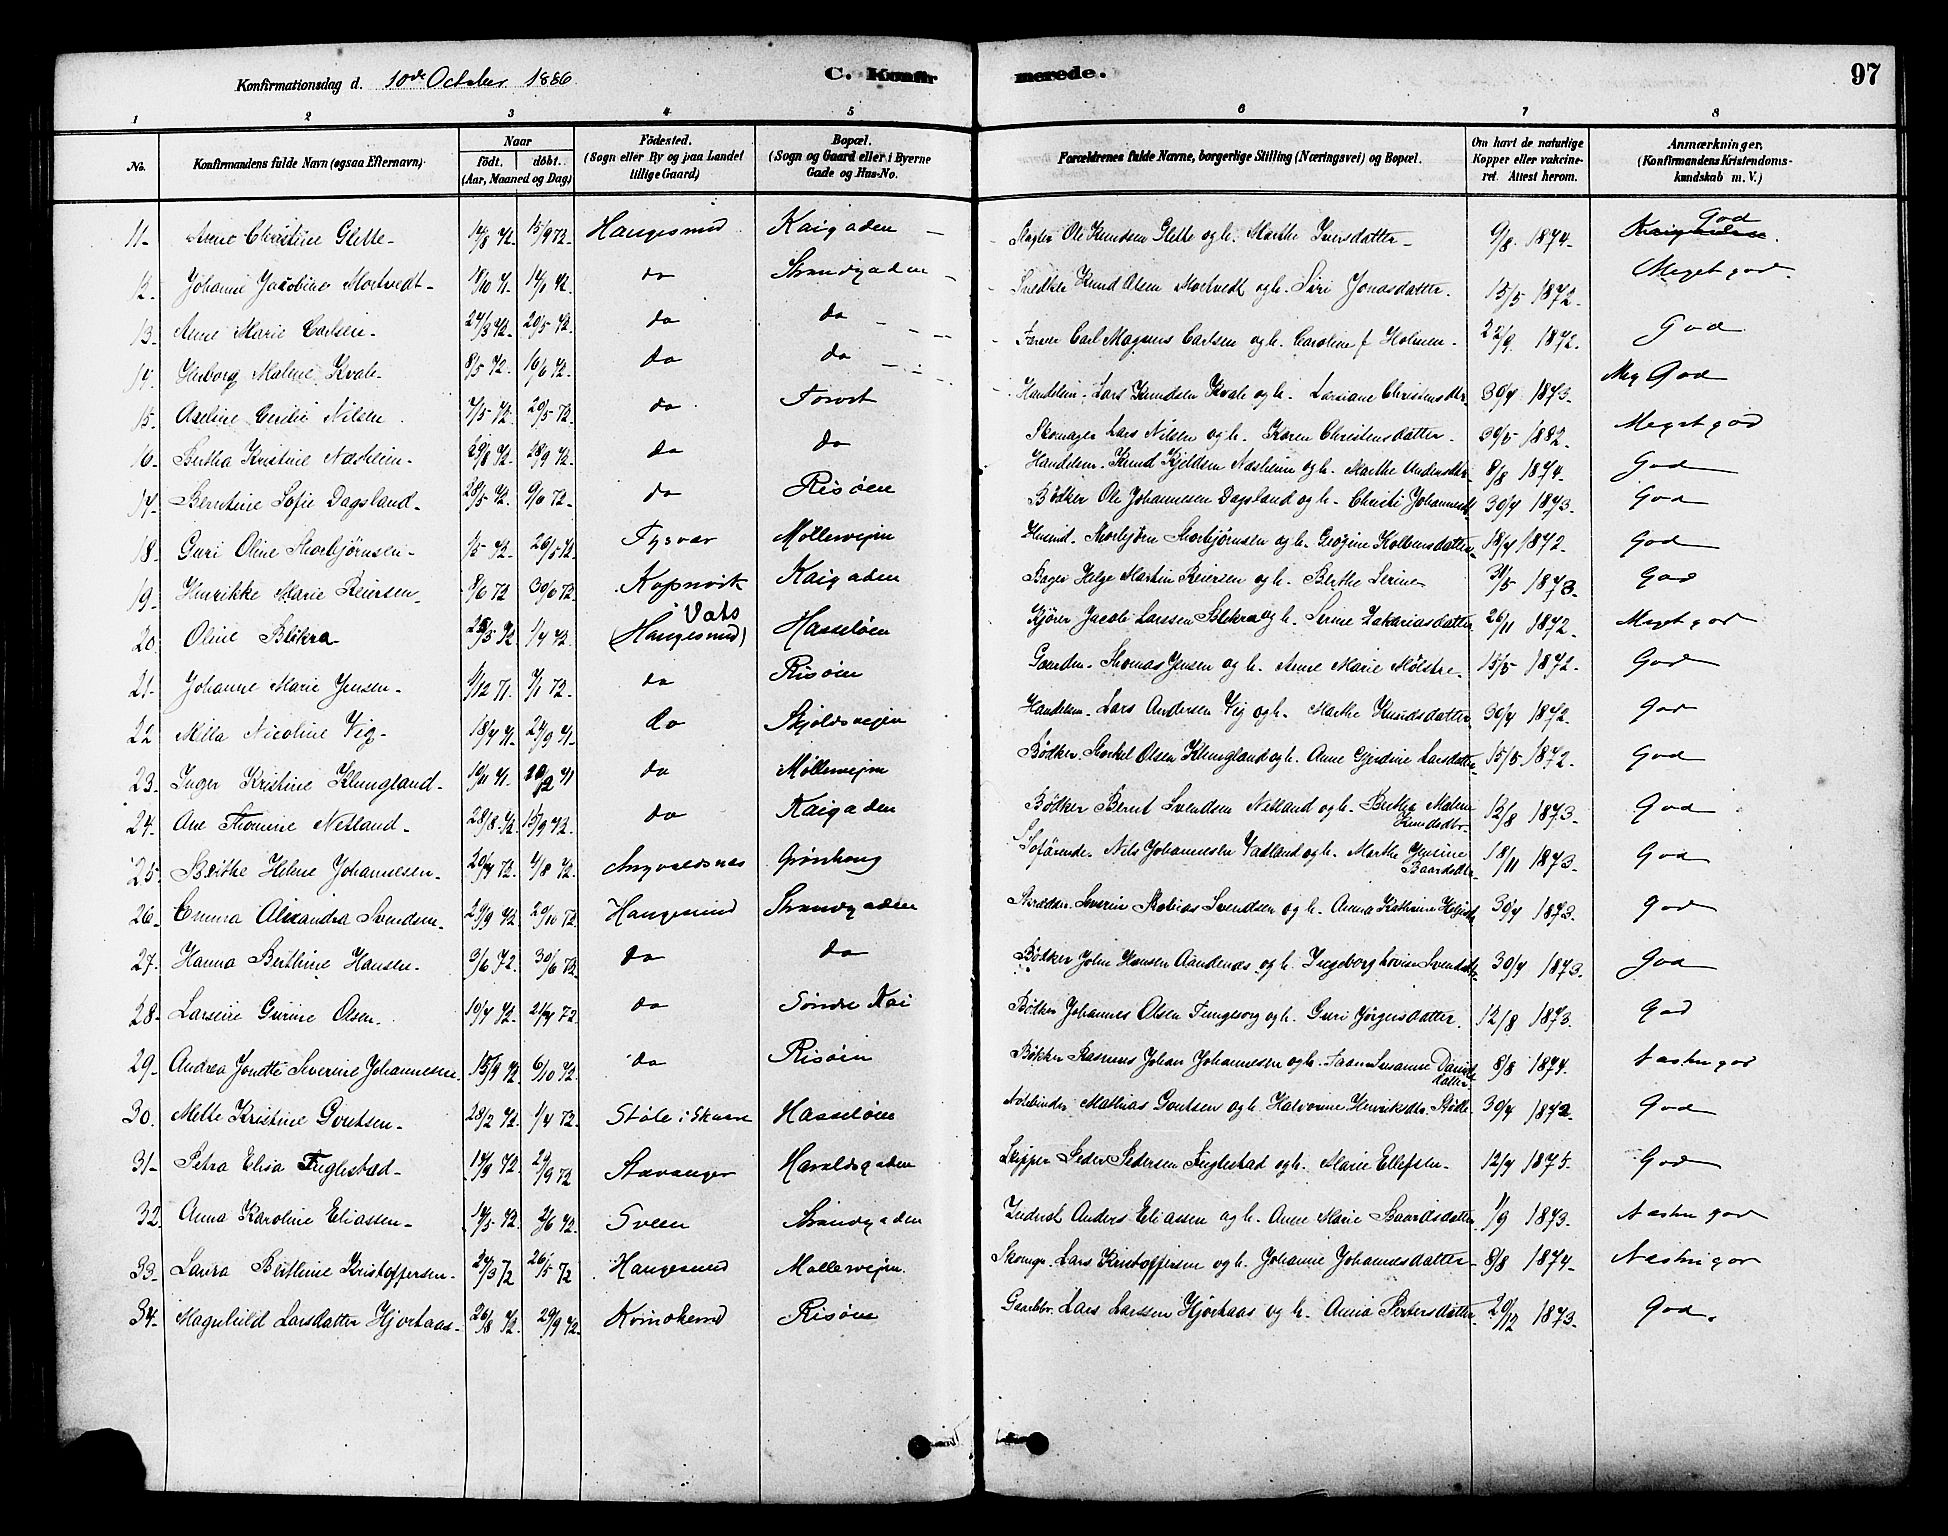 Konfirmationsdag d. 10de October 1886
C. Konfirmerede.
97
1 2 3 4 5 6 7 8
No. Konfirmandens fulde Navn (ogsaa Efternavn). Naar födt. döbt. (Aar, Maaned og Dag) Födested. (Sogn eller By og paa Landet tillige Gaard.) Bopæl. (Sogn og Gaard eller i Byerne Gade og Hus-No. Forældrenes fulde Navne, borgerlige Stilling (Næringsvei) og Bopæl. Om havt de naturlige Kopper eller vakcineret. Attest herom. Anmærkninger, (Konfirmandens Kristendomskundskab m. V.)
11. Anne Christine Glette 14/8 72 15/9 72. Haugesund Kaigaden Ole Knudsen Glette og h. Marthe Iversdatter 9/8 1874. God
12. Johanne Jacobine Mortvedt 14/1 72. do Strandgaden Snedker Knud Olsen Mortvedt og h. Siri Jonasdatter. 15/5 1872. Meget god
13. Anne Marie Carlsen 24/3 72. 20/5 72. do do Farver Carl Magnus Carlsen og h. Caroline f Holmen 22/9 1872. God
14. Herborg Malene Kvale 8/5 72. 16/6 72. do do Handelsm. Lars Knudsen Kvale og h. Larsiane Christensdtr. 30/4 1873. Meg God
15. Axeline Cecilie Nilsen 7/5 72. 20/5 72. do Torvet Skomager Lars Nilsen og h. Karen Christensdatter. 30/5 1882. Meget god
16. Bertha Kristine Næsheim 29/8 72. 28/9 72. do do Handelsm. Knud Kjeldsen Næsheim og h. Marthe Andersdtr. 8/8 1874. God
17. Berntine Sofie Dagsland 28/5 72. 9/6 72. do Risöen Bödker Ole Johannesen Dagsland og h. Christi Johannesd. 30/4 1873. God
18. Guri Oline Thorbjörnsen 1/5 72. 26/5 72. Tysvær Möllervejen Husmd. Thorbjörn Thorbjörnsen og h. Georgine Kolbensdatter 18/4 1872. God
19. Henrikke Marie Reiersen 8/6 72 30/6 72. Kopervik Kaigaden Bager Helge Martin Reiersen og h. Berthe Serine 31/5 1873. God
20. Oline Blikra 1/4 72. i Vats (Haugesund) Hasselöen Kjörer Jacob Larssen Blikra og h. Serine Zakariasdatter 26/11 1872. Meget god
21. Johanne Marie Jensen 7/1 72. do Risöen Gaardm. Thomas Jensen og h. Anne Marie Mölstre 15/5 1872. God
22. Milla Nicoline Vig 18/4 71. 24/9 71. do Skjoldsvejen Handelsm. Lars Andersen Vig og h. Marthe Knudsdatter 30/4 1872. God
23. Inger Kristine Klungland 19/11 71. do Möllervejen Bödker Thorkel Olsen Klungland og h. Anne Gjerdine Larsdatter 15/5 1872. God
24. Ane Thomine Netland 28/8 72. 15/9 72. do Kaigaden Bödker Bernt Svendsen Netland og h. Bertha Malene Knudsdtr. 12/8 1873. God
25. Berthe Helene Johannesen 20/7 72. 4/8 72. Augvaldsnæs Grönhaug Söfarende Nils Johannesen Vadland og h. Marthe Baardsdtr. 18/11 1873. God
26. Emma Alexandra Svendsen 29/9 72. 29/10 72. Haugesund Strandgaden Skrædder Severin Tobias Svendsen og h. Anna Kathrine 30/4 1873. God
27. Hanna Berthine Hansen 3/6 72. 30/6 72. do do Bödker John Hansen Aandenæs og h. Ingeborg Lovise Svendsdtr. 30/4 1873. God
28. Larsine Gurine Olsen. 10/4 72. 21/4 72. do Söndre Kai Bödker Johannes Olsen og h. Guri Jörgensdatter. 12/8 1873. God
29. Andrea Jonette Severine Johannesen. 15/9 72. 6/10 72. do Risöen Bökker Rasmus Johan Johannesen og h. Susanne Daniels datter 8/8 1874. Næsten god
30. Mette Kristine Govertsen 28/2 72. 1/4 72. Stöle i Skaare Hasselöen Notebinder Mathias Govertsen og h. Halvorine Henriksdtr. Stöle 30/4 1872. God
31. Petra Elisa Fuglestad 14/9 72. 29/9 72 Stavanger Haraldsgaden Skipper Peder Pedersen Fuglestad og h. Marie Ellefsen 12/4 1875. God
32. Anna Karoline Eliassen 14/5 72. 2/6 72. Sveen Strandgaden Anders Eliassen og h. Anne Marie Baardsdatter 1/9 1873. Næsten god
33. Laura Berthine Kristoffersen 24/3 72 26/5 72 Haugesund Mollervejen. Skomgr. Lars Kristoffersen og h. Johanne Johannesdatter 8/8 1874. Næsten god
34. Magnhild Larsdatter Hjorhaas 26/8 72. 29/9 72. Risöen Gaardbr. Lars Larssen Hjorhaas og h. Anna Sivertsdatter 20/12 1873. God.